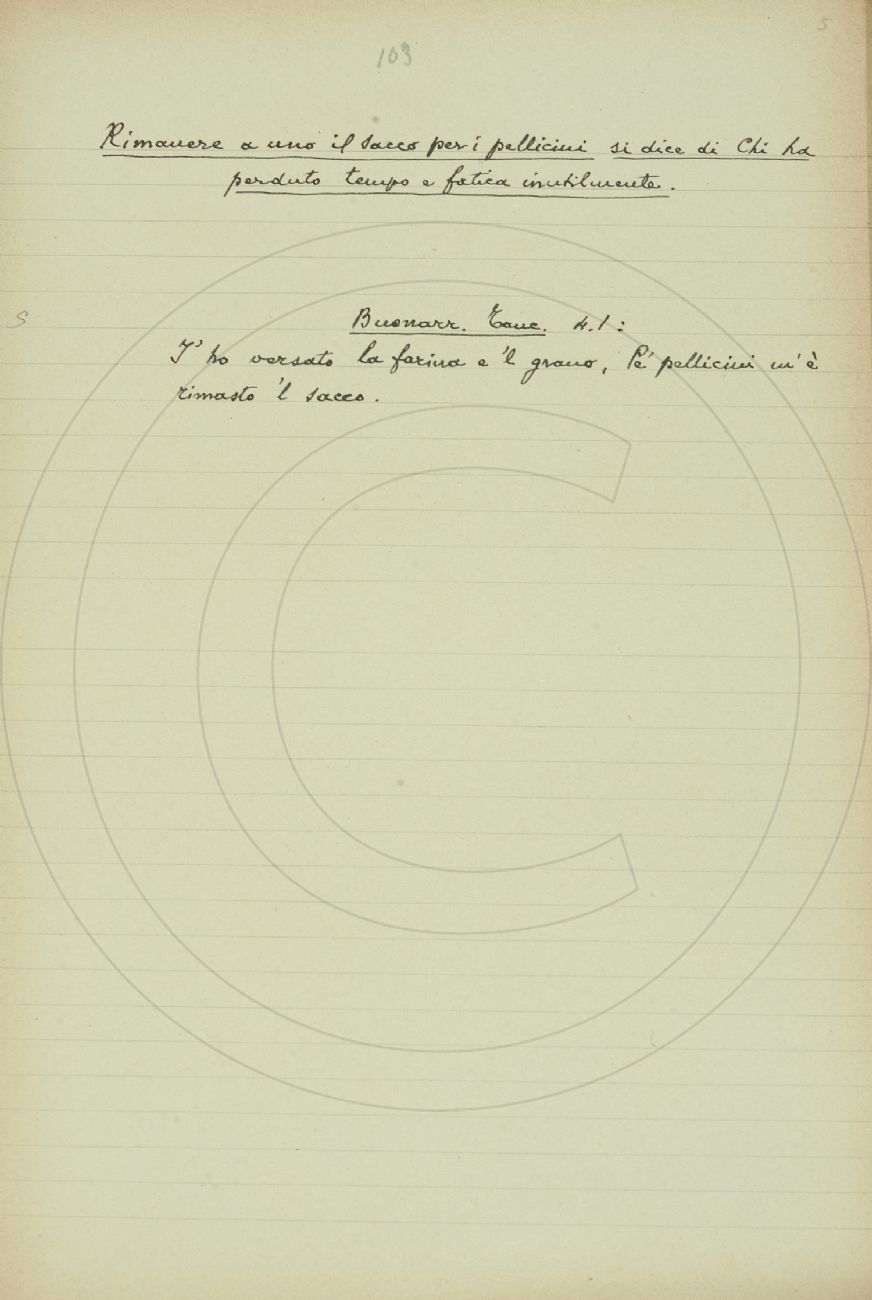 5
103
Rimanere a uno il sacco per i pellicini si dice di Chi ha
perduto tempo e fatica inutilmente.
S
Buonarr. Tanc. 4.1:
I' ho versato la farina e 'l grano, Pe' pellicini m' è
rimasto 'l sacco.